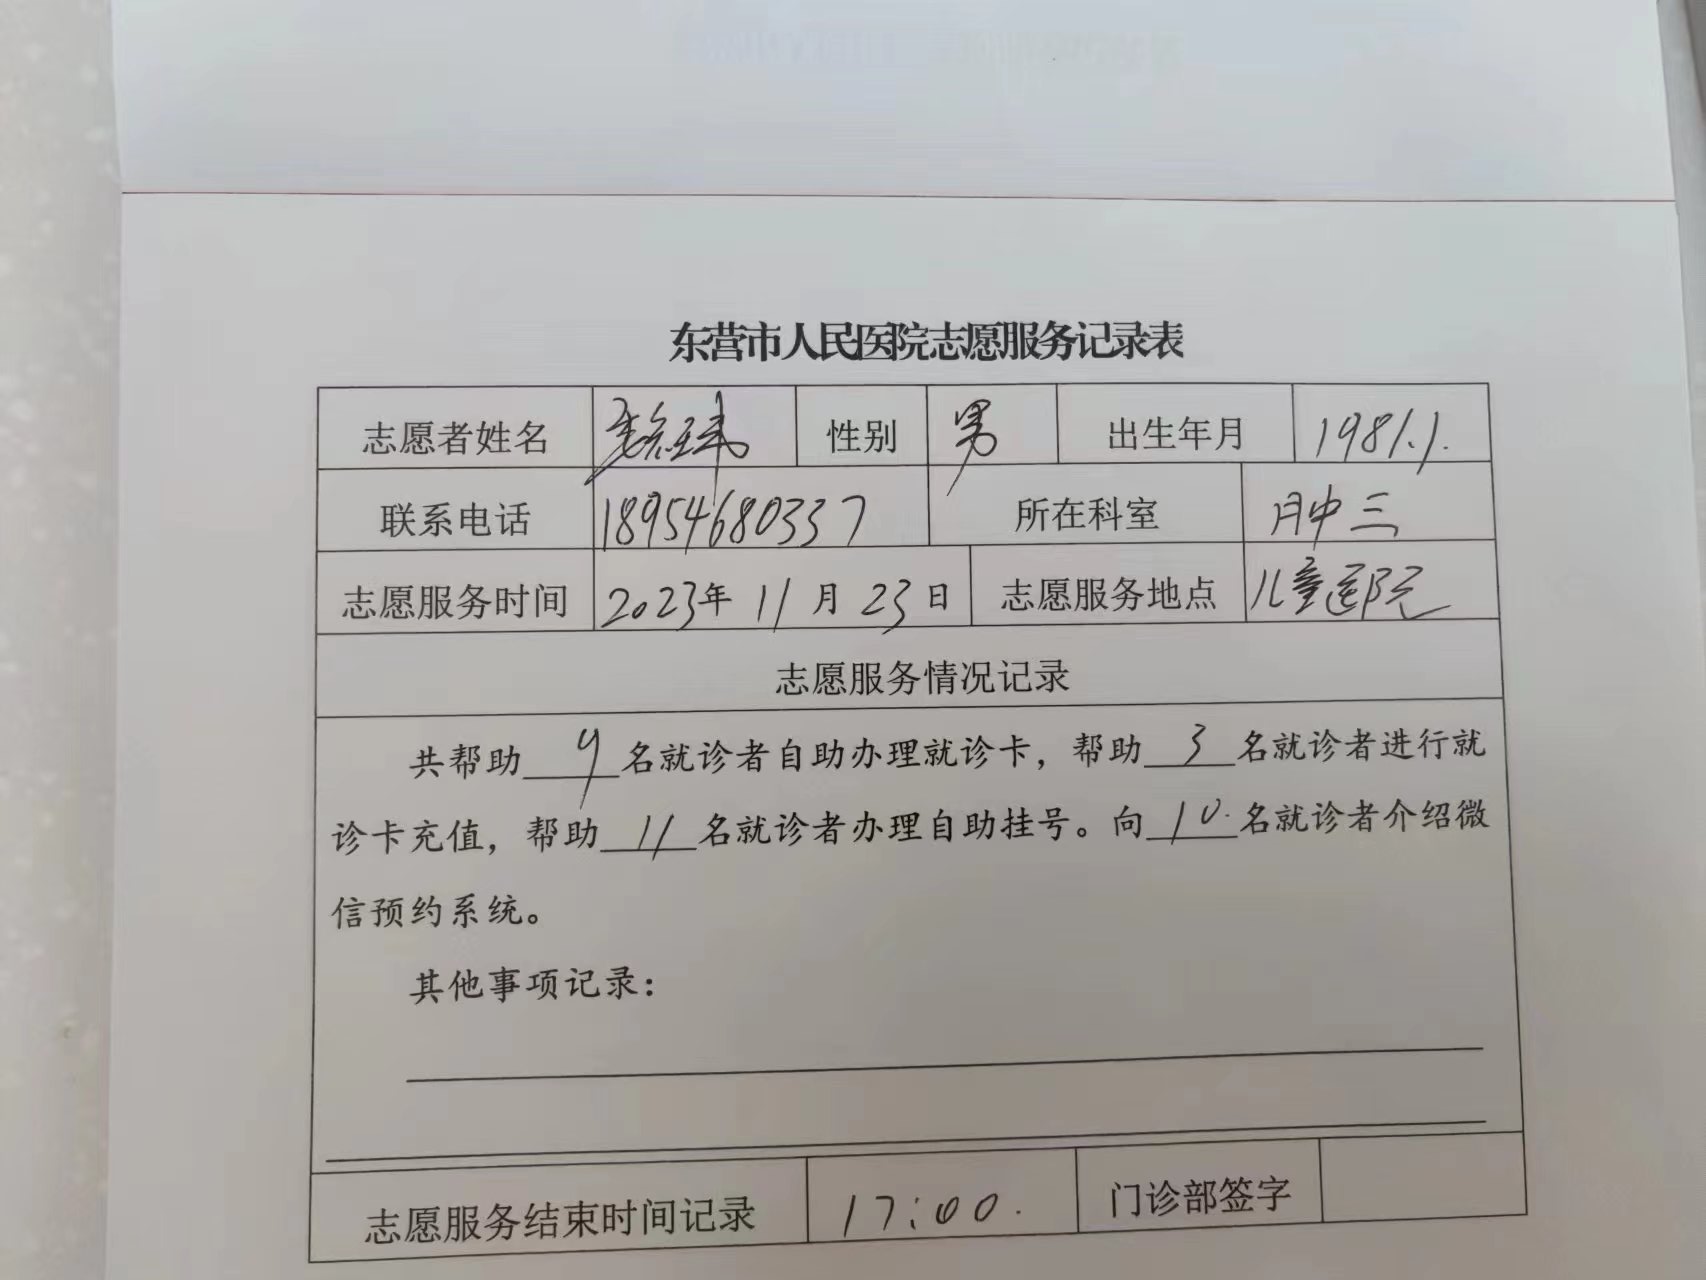 东营市人民医院志愿服务记录表
志愿者姓名 性别 男 出生年月 1981.1.
联系电话 18954680337 所在科室 中三
志愿服务时间 2023年 11月 23日 志愿服务地点 儿童医院
志愿服务情况记录
共帮助 9 名就诊者自助办理就诊卡，帮助 3 名就诊者进行就
诊卡充值，帮助 11 名就诊者办理自助挂号。向 10. 名就诊者介绍微
信预约系统。
其他事项记录：
志愿服务结束时间记录 17:00. 门诊部签字